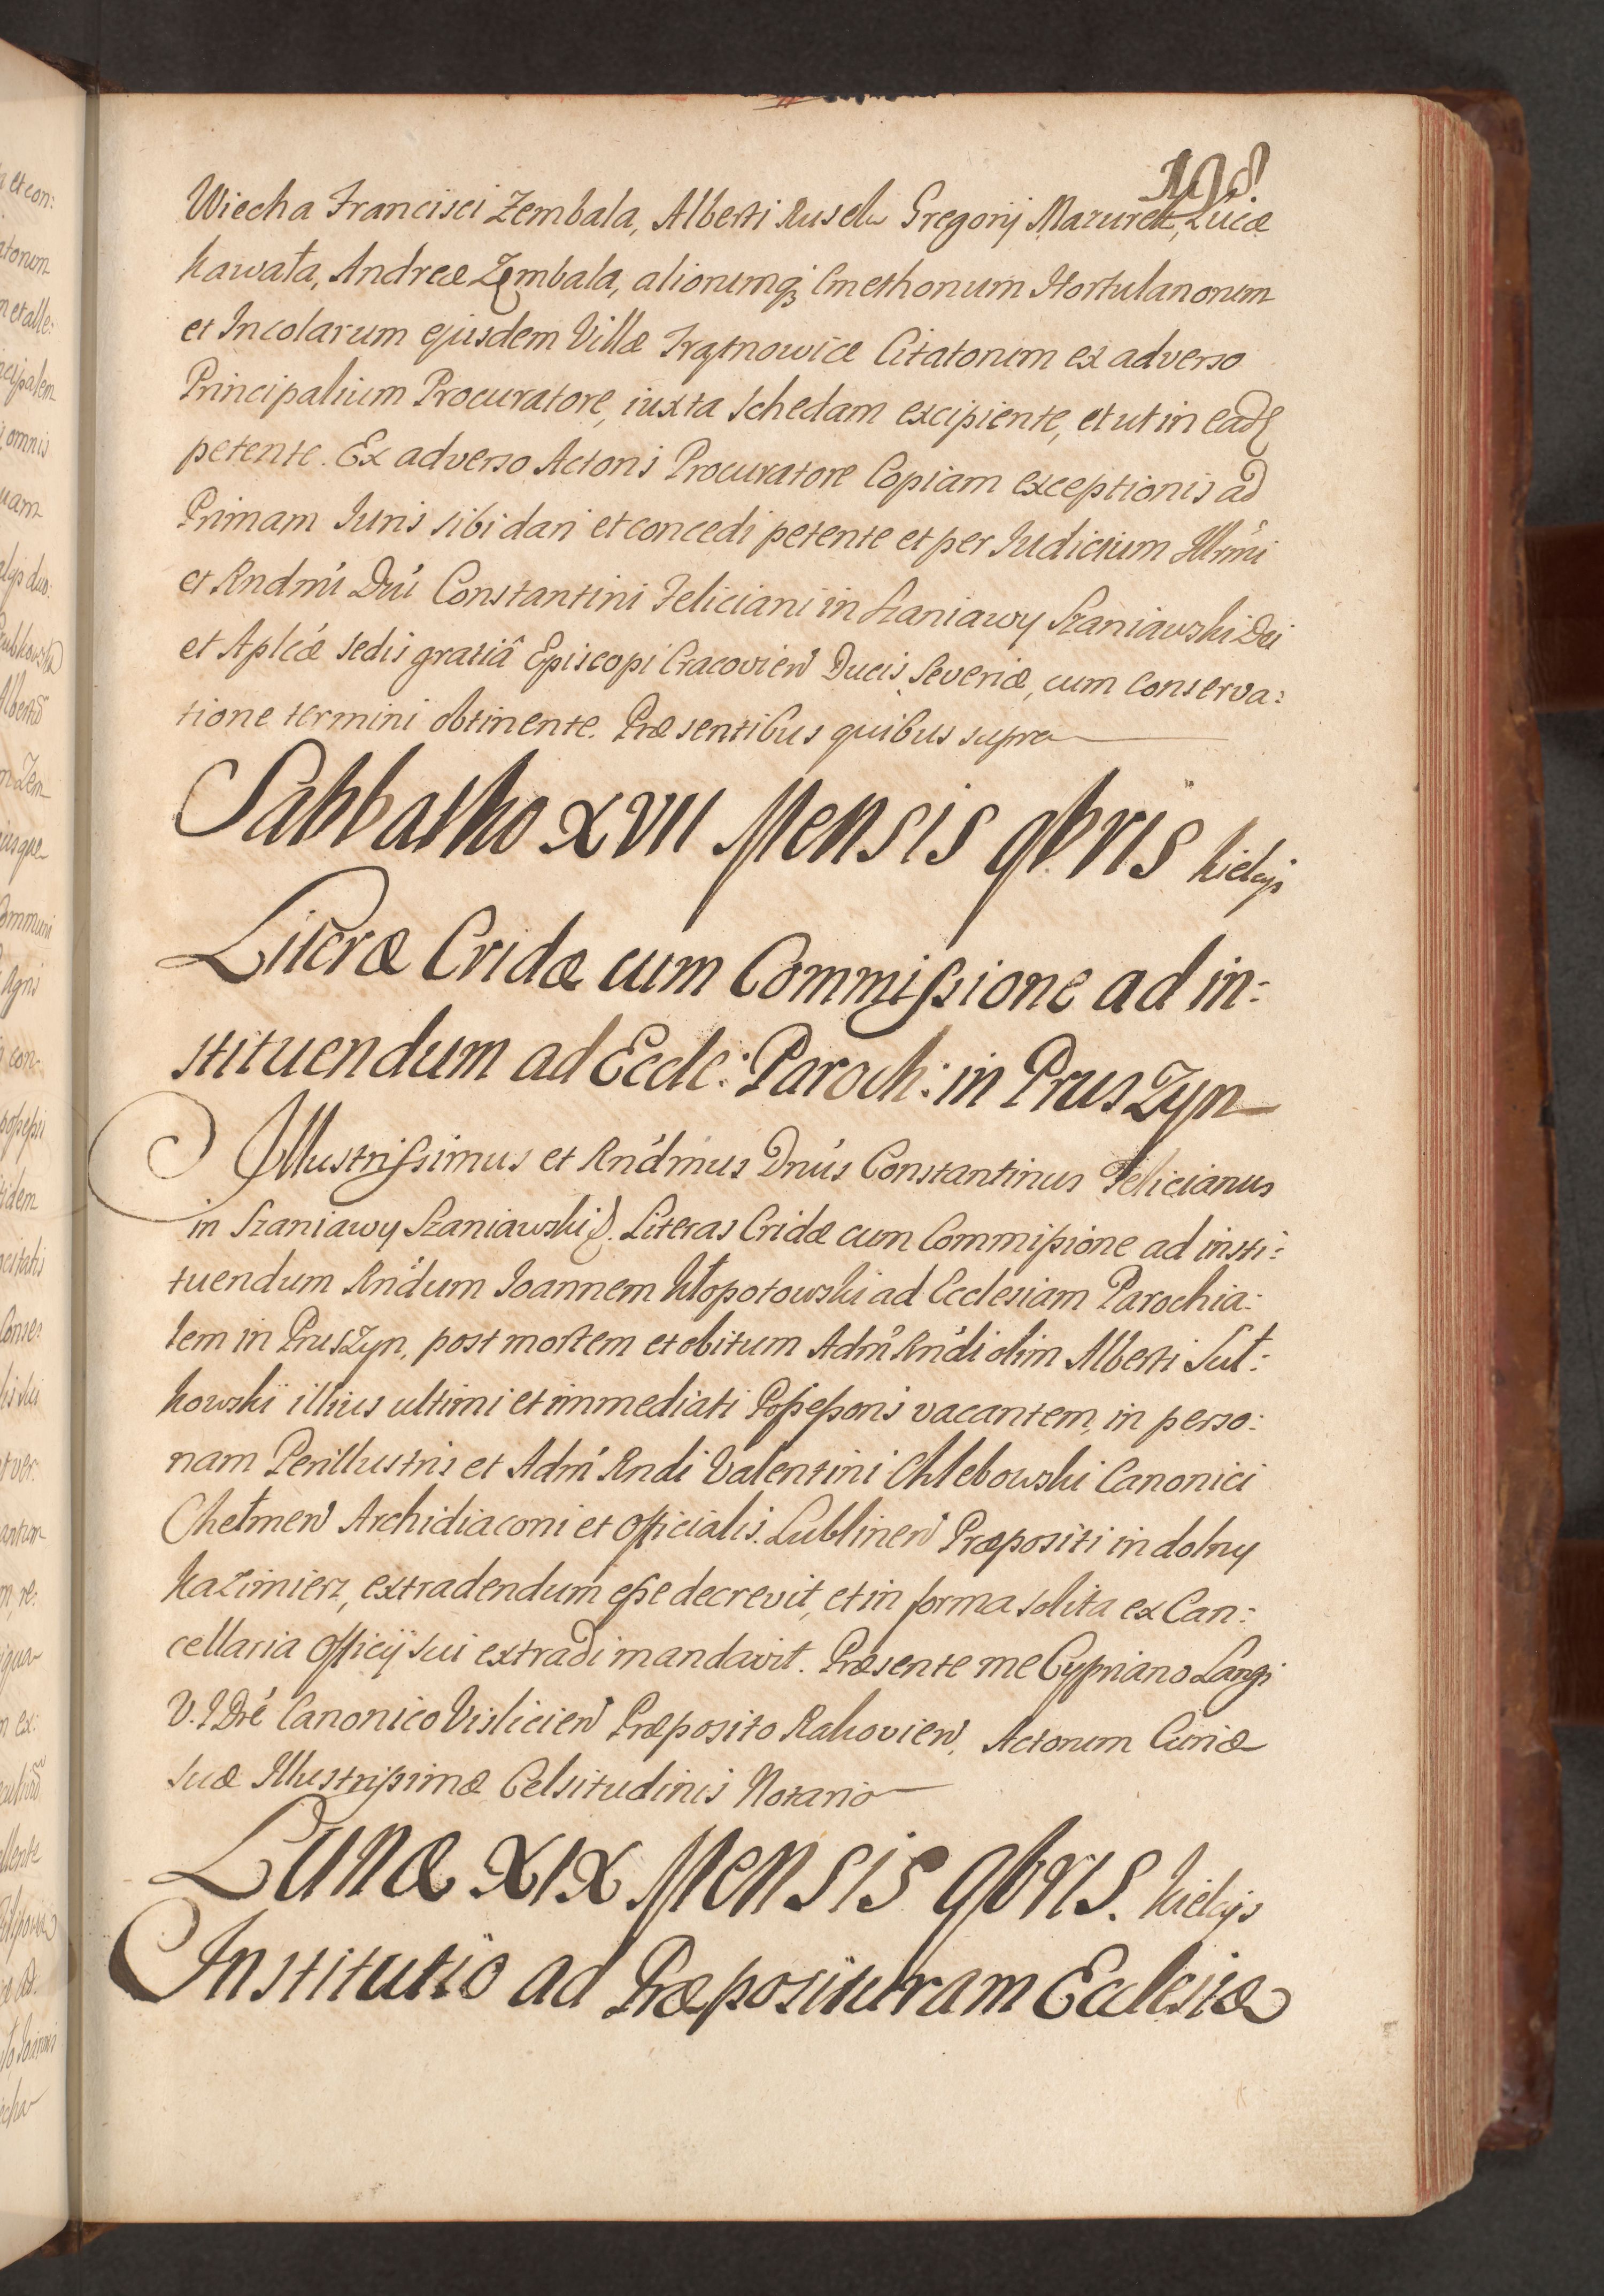 108
Wiecha Francisci Zembala, Alberti Rusek Gregorij Mazurek, Lucæ
Kawała, Andreæ Zembala, aliorumq; Cmethonum Hortulanorum
et Incolarum ejusdem Villæ Frątnowice Citatorum ex adverso
Principalium Procuratore, iuxta Schedam excipiente, et ut in eadē
petente. Ex adverso Actoris Procuratore Copiam exceptionis ad
Primam Iuris sibi dari et concedi petente et per Iudicium Illrmi
et Rndmi Dni Constantini Feliciani in Szaniawy Szaniawski Dei
et Aplicæ Sedis gratiâ Episcopi Cracovien Ducis Severiæ, cum conserva:
tione termini obtinente. Præsentibus quibus supra
Sabbatho XVII Mensis 9bris Kielcijs
Literæ Cridæ cum Commissione ad in:
stituendum ad Eccle: Paroch: in Pruszyn
Illustrissimus et Rndmus Dnus Constantinus Felicianus
in Szaniawy Szaniawski &. Literas Cridæ cum Commissione ad insti:
tuendum Rndum Ioannem Kłopotowski ad Ecclesiam Parochia:
lem in Pruszyn, post mortem et obitum Adm Rndi olim Alberti Suł:
kowski illius ultimi et immediati Possessoris vacantem, in perso:
nam Perillustris et Adm Rndi Valentini Chlebowski Canonici
Chełmen Archidiaconi et Officialis Lublinen Præpositi in dolny
Kazimierz, extradendum esse decrevit, et in forma solita ex Can:
cellaria Officij sui extradi mandavit. Præsente me Cypriano Langi
V. I Dre Canonico Vislicien Præposito Rakovien, Actorum Curiæ
suæ Illustrissimæ Celsitudinis Notario
Lunæ XIX Mensis 9bris. Kielcijs
Institutio ad Præposituram Ecclesiæ